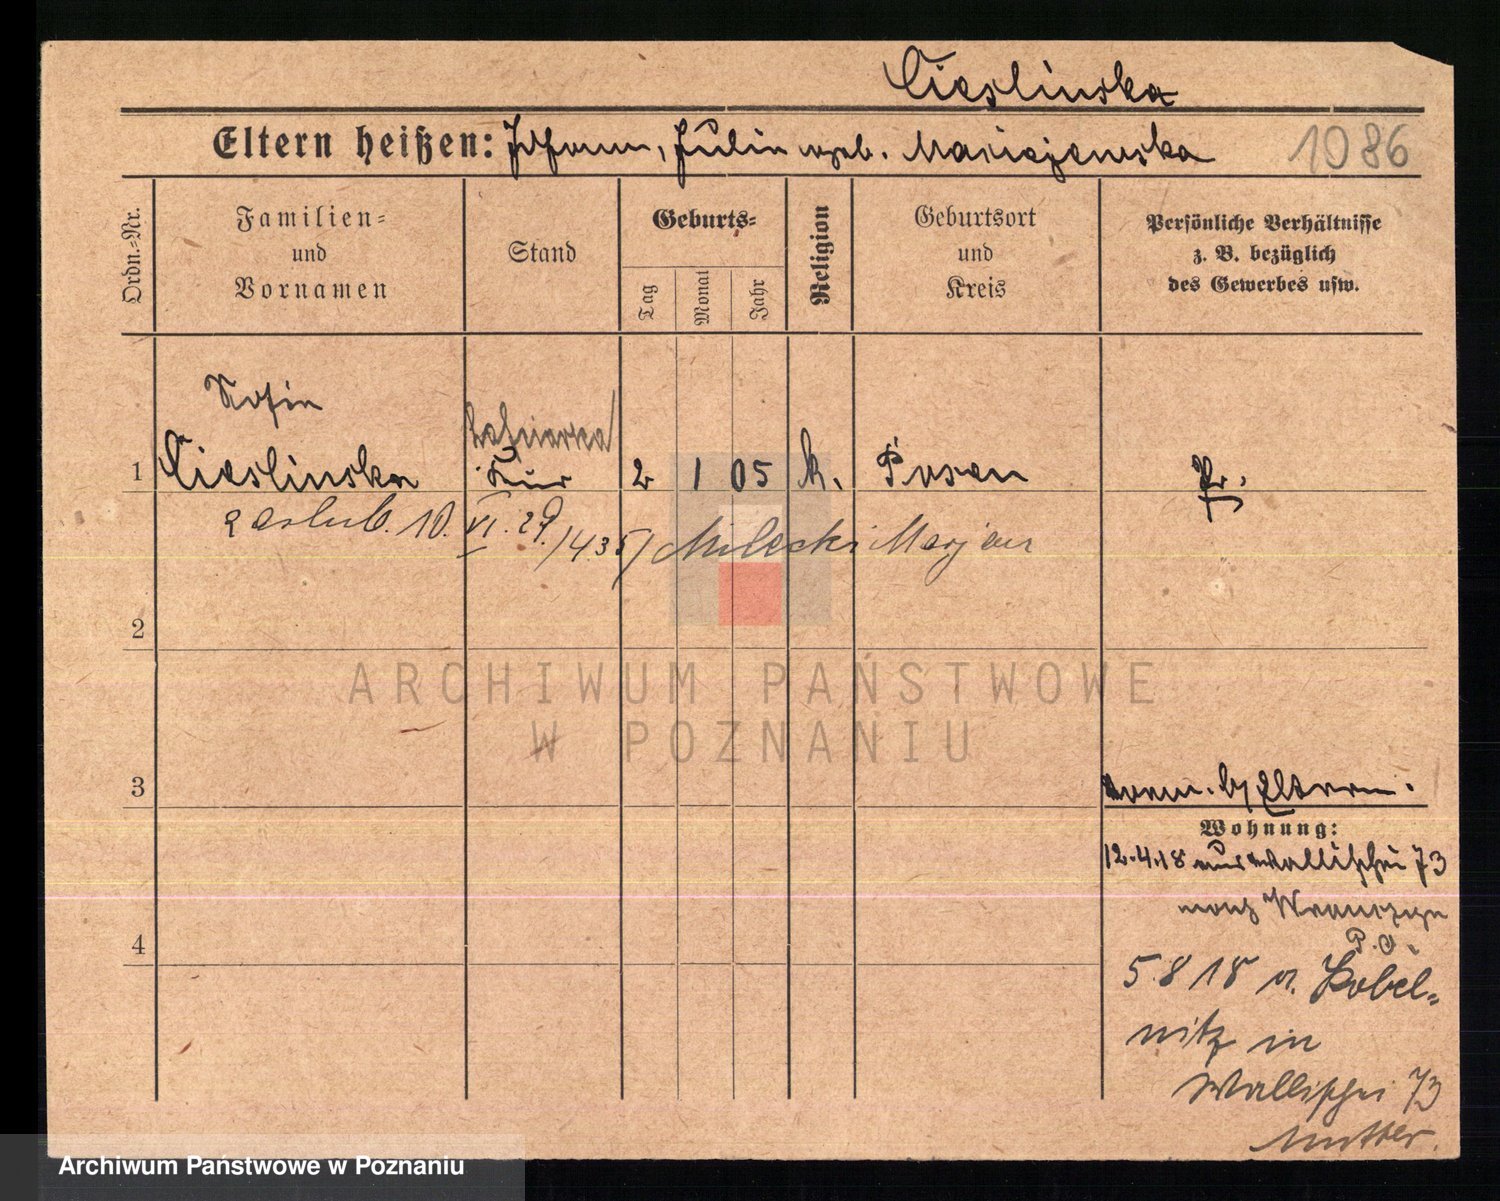 Cieslinska
Eltern heißen: Johann, Julia geb. Maciejewska
1086
Ordn.-Nr.
Familien-
und
Vornamen
Stand
Geburts-
Tag
Monat
Jahr
Religion
Geburtsort
und
Kreis
Persönliche Verhältnisse
z. B. bezüglich
des Gewerbes usw.
Sofia
1 Cieslinska 2 1 05 k. Posen Pr.
zaślub. 10. VI. 29. /1435/ Milecki Marjan
2
ARCHIWUM PAŃSTWOWE
W POZNANIU
3
vorm. b/ Eltern.
Wohnung:
12.4.18 aus Wallischei 73
nach
P. O.
4
5 8 18 v. Kobel-
nitz in
Wallischei 73
Mutter.
Archiwum Państwowe w Poznaniu